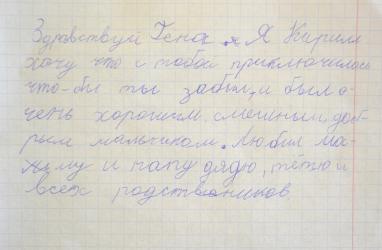 Здравствуй Гена. Я Кирилл
хочу что с тобой приключилось
что-бы ты забыл, и был о-
чень хорошим, смешным, доб-
рым мальчиком. Любил ма-
му и папу дядю, тётю и
всех родствиников.